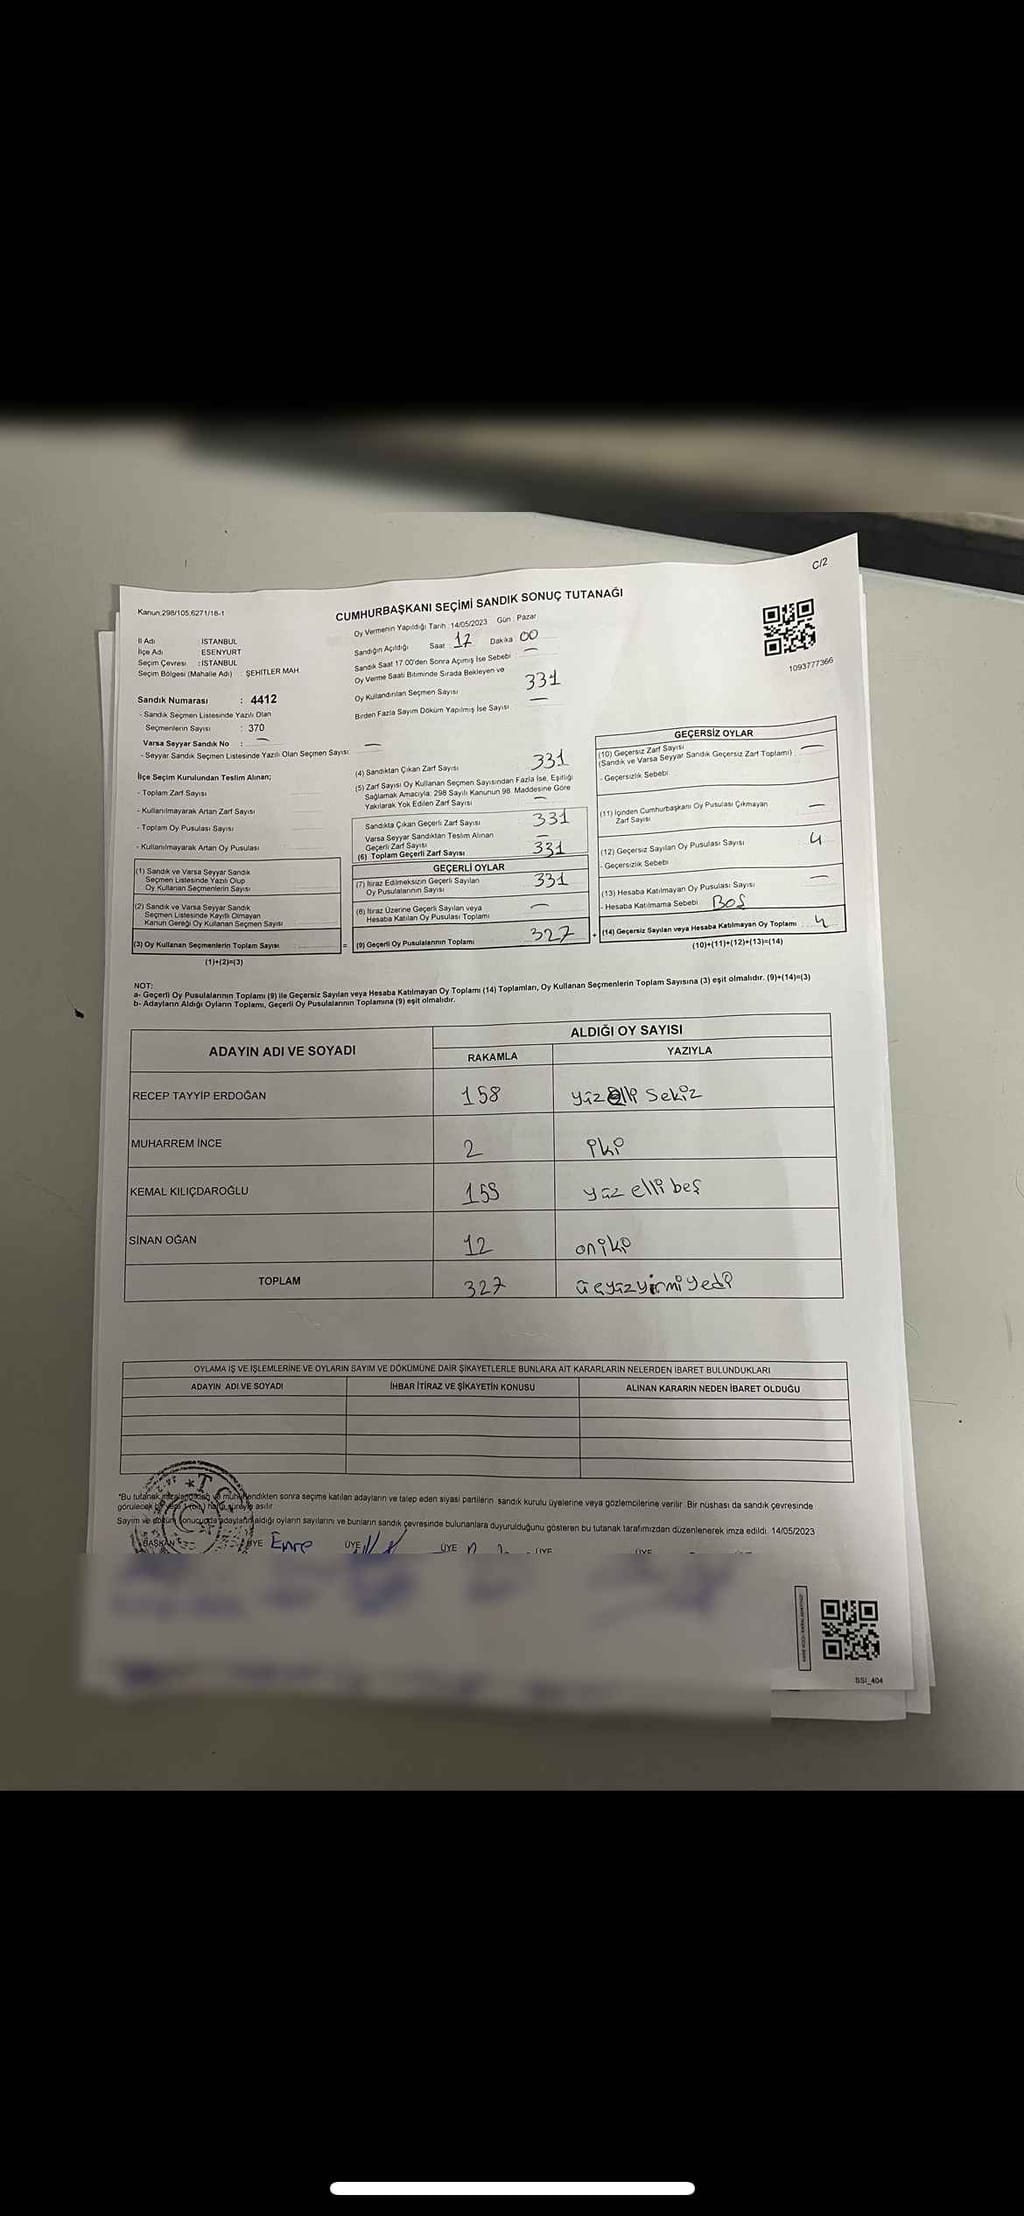 C/2
Kanun,298/105,6271/18-1
CUMHURBAŞKANI SEÇİMİ SANDIK SONUÇ TUTANAĞI
Oy Vermenin Yapıldığı Tarih 14/05/2023 Gün : Pazar
İl Adı : İSTANBUL
İlçe Adı : ESENYURT
Seçim Çevresi : İSTANBUL
Seçim Bölgesi (Mahalle Adı) : ŞEHİTLER MAH
Sandığın Açıldığı Saat : 17 Dakika 00
Sandık Saat 17.00'den Sonra Açılmış İse Sebebi —
Oy Verme Saati Bitiminde Sırada Bekleyen ve
Oy Kullandırılan Seçmen Sayısı 331
Birden Fazla Sayım Döküm Yapılmış İse Sayısı —
1093777366
Sandık Numarası : 4412
- Sandık Seçmen Listesinde Yazılı Olan
Seçmenlerin Sayısı : 370
Varsa Seyyar Sandık No : —
- Seyyar Sandık Seçmen Listesinde Yazılı Olan Seçmen Sayısı: —
İlçe Seçim Kurulundan Teslim Alınan;
- Toplam Zarf Sayısı
- Kullanılmayarak Artan Zarf Sayısı
- Toplam Oy Pusulası Sayısı
- Kullanılmayarak Artan Oy Pusulası
(1) Sandık ve Varsa Seyyar Sandık
Seçmen Listesinde Yazılı Olup
Oy Kullanan Seçmenlerin Sayısı
(2) Sandık ve Varsa Seyyar Sandık
Seçmen Listesinde Kayıtlı Olmayan
Kanun Gereği Oy Kullanan Seçmen Sayısı
(3) Oy Kullanan Seçmenlerin Toplam Sayısı
(1)+(2)=(3)
(4) Sandıktan Çıkan Zarf Sayısı 331
(5) Zarf Sayısı Oy Kullanan Seçmen Sayısından Fazla İse, Eşitliği
Sağlamak Amacıyla; 298 Sayılı Kanunun 98. Maddesine Göre
Yakılarak Yok Edilen Zarf Sayısı —
Sandıkta Çıkan Geçerli Zarf Sayısı 331
Varsa Seyyar Sandıktan Teslim Alınan
Geçerli Zarf Sayısı —
(6) Toplam Geçerli Zarf Sayısı 331
GEÇERLİ OYLAR
(7) İtiraz Edilmeksizin Geçerli Sayılan
Oy Pusulalarının Sayısı 331
(8) İtiraz Üzerine Geçerli Sayılan veya
Hesaba Katılan Oy Pusulası Toplamı —
= (9) Geçerli Oy Pusulalarının Toplamı 327
GEÇERSİZ OYLAR
(10) Geçersiz Zarf Sayısı
(Sandık ve Varsa Seyyar Sandık Geçersiz Zarf Toplamı) —
- Geçersizlik Sebebi
(11) İçinden Cumhurbaşkanı Oy Pusulası Çıkmayan
Zarf Sayısı —
(12) Geçersiz Sayılan Oy Pusulası Sayısı 4
- Geçersizlik Sebebi
(13) Hesaba Katılmayan Oy Pusulası Sayısı —
- Hesaba Katılmama Sebebi BOŞ
+ (14) Geçersiz Sayılan veya Hesaba Katılmayan Oy Toplamı 4
(10)+(11)+(12)+(13)=(14)
NOT:
a- Geçerli Oy Pusulalarının Toplamı (9) ile Geçersiz Sayılan veya Hesaba Katılmayan Oy Toplamı (14) Toplamları, Oy Kullanan Seçmenlerin Toplam Sayısına (3) eşit olmalıdır. (9)+(14)=(3)
b- Adayların Aldığı Oyların Toplamı, Geçerli Oy Pusulalarının Toplamına (9) eşit olmalıdır.
ADAYIN ADI VE SOYADI
ALDIĞI OY SAYISI
RAKAMLA YAZIYLA
RECEP TAYYİP ERDOĞAN 158 yüzelli sekiz
MUHARREM İNCE 2 iki
KEMAL KILIÇDAROĞLU 155 yüz elli beş
SİNAN OĞAN 12 oniki
TOPLAM 327 üçyüzyirmiyedi
OYLAMA İŞ VE İŞLEMLERİNE VE OYLARIN SAYIM VE DÖKÜMÜNE DAİR ŞİKAYETLERLE BUNLARA AİT KARARLARIN NELERDEN İBARET BULUNDUKLARI
ADAYIN ADI VE SOYADI İHBAR İTİRAZ VE ŞİKAYETİN KONUSU ALINAN KARARIN NEDEN İBARET OLDUĞU
*Bu tutanak sonra seçime katılan adayların ve talep eden siyasi partilerin sandık kurulu üyelerine veya gözlemcilerine verilir. Bir nüshası da sandık çevresinde
görülecek asılır
Sayım ve aldığı oyların sayılarını ve bunların sandık çevresinde bulunanlara duyurulduğunu gösteren bu tutanak tarafımızdan düzenlenerek imza edildi. 14/05/2023
T.C.
BAŞKAN ÜYE Emre ÜYE ÜYE ÜYE ÜYE
SSI_404